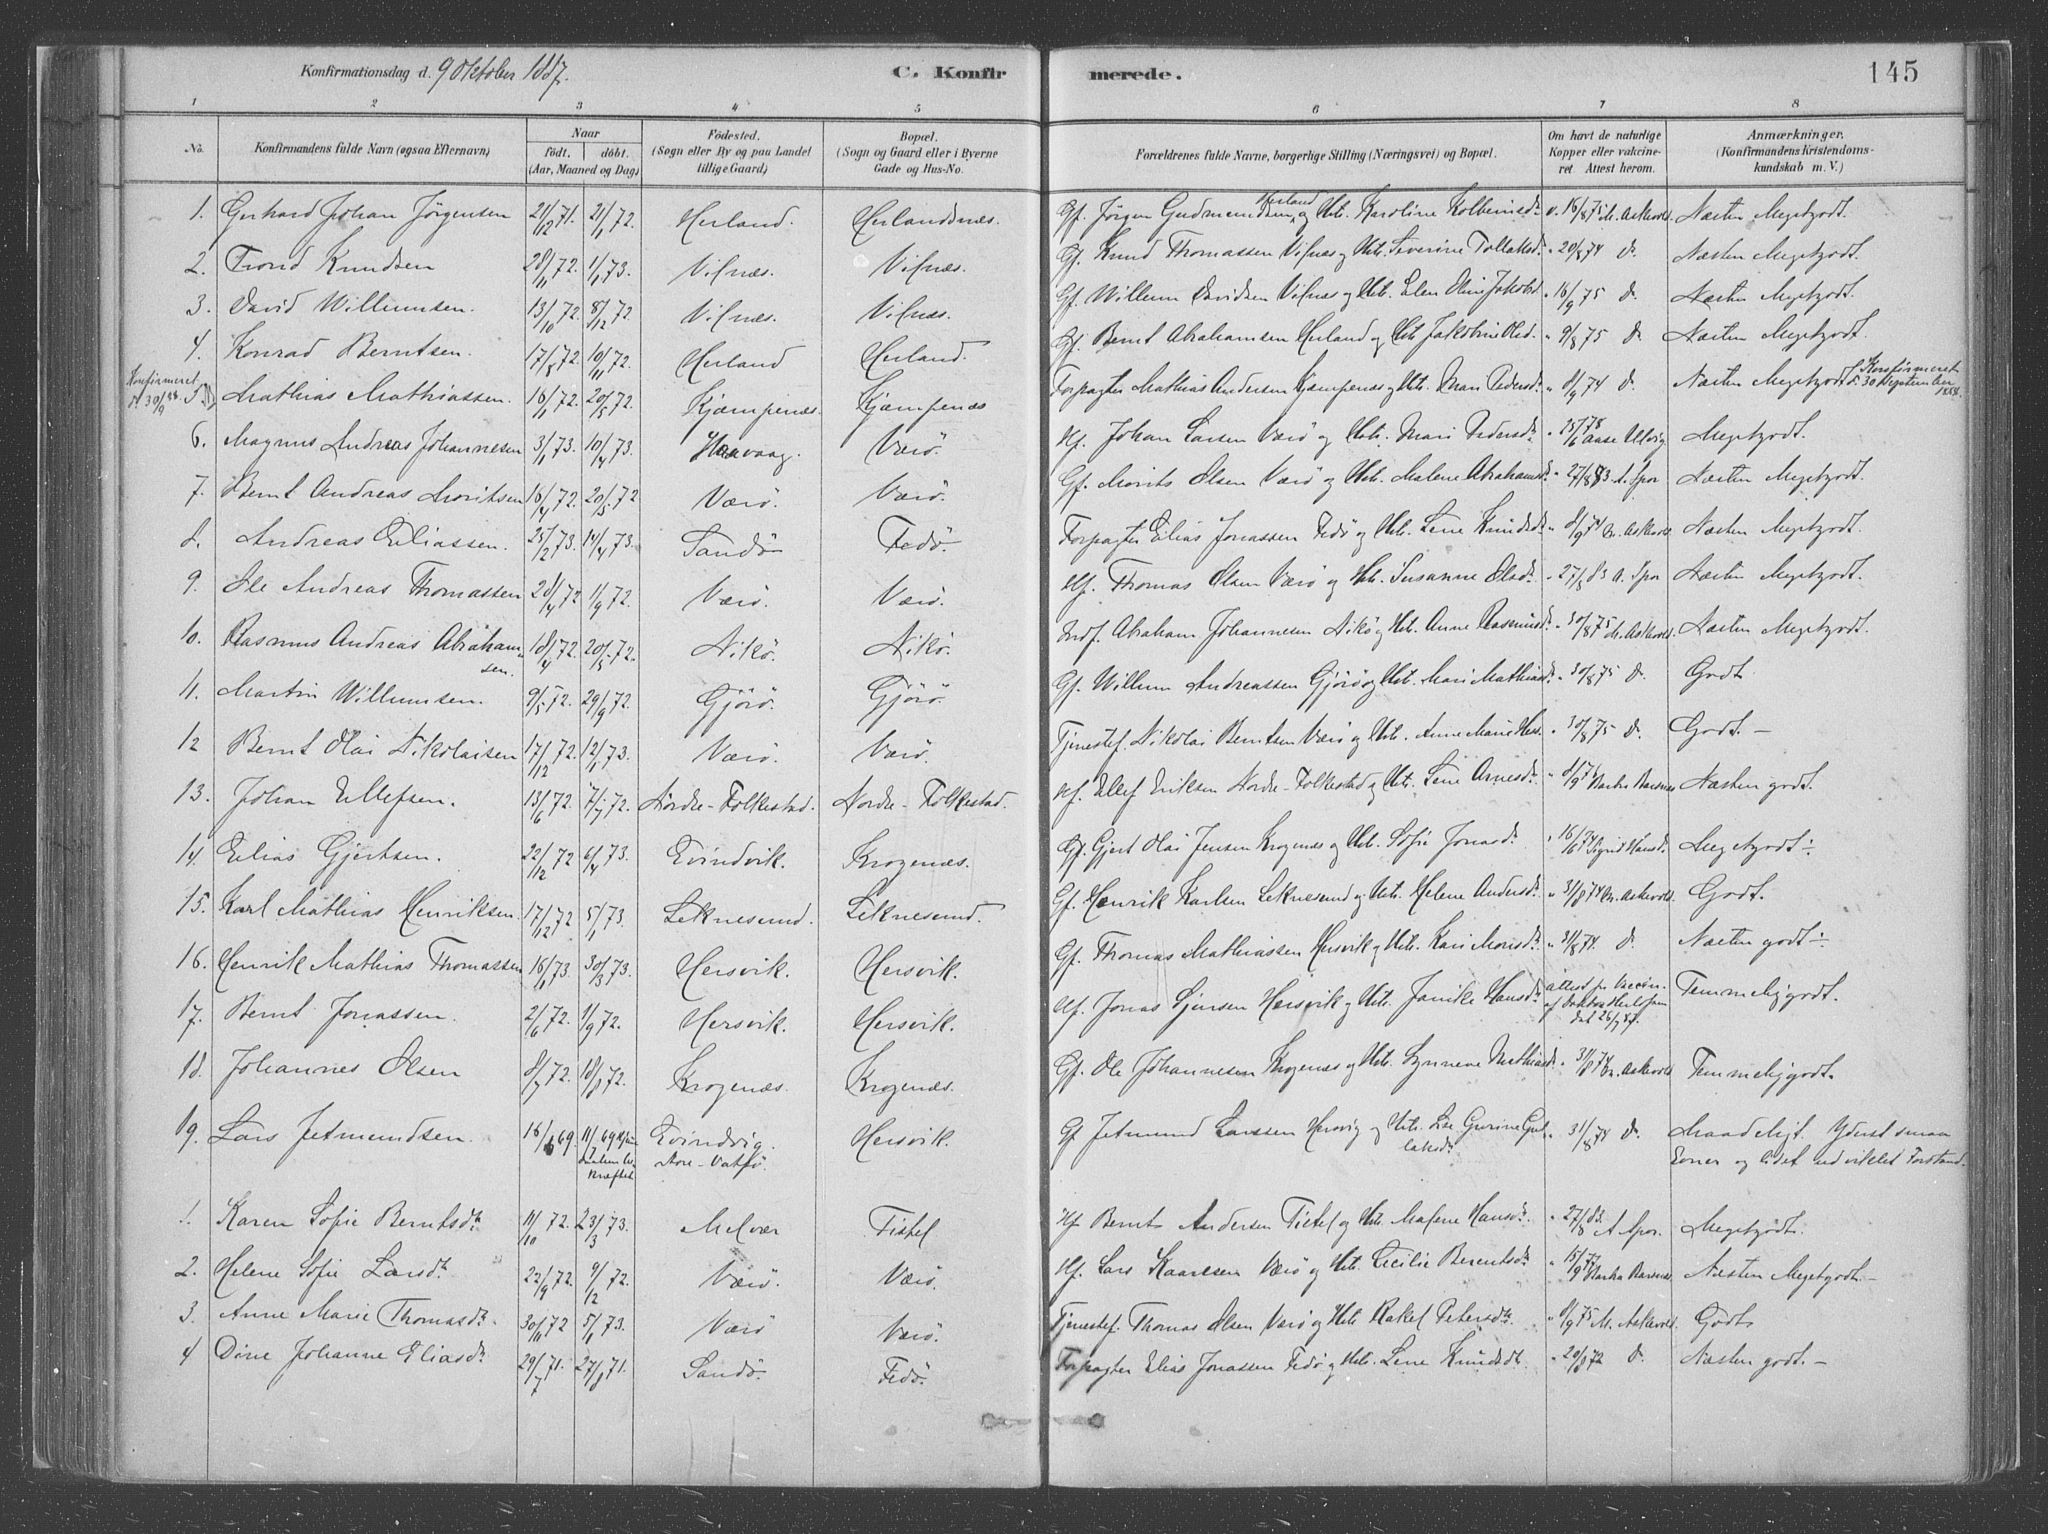 Konfirmationsdag d. 9 Oktober 1887. C. Konfir merede. 145
1 2 3 4 5 6 7 8
No. Konfirmandens fulde Navn (ogsaa Efternavn) Naar født. døbt. (Aar, Maaned og Dag) Fødested. (Sogn eller By og paa Landet tillige Gaard) Bopæl. (Sogn og Gaard eller i Byerne Gade og Hus-No. Forældrenes fulde Navne, borgerlige Stilling (Næringsvei) og Bopæl. Om havt de naturlige Kopper eller vakcineret Attest herom. Anmærkninger. (Konfirmandens Kristendomskundskab m. V.)
1. Gerhard Johan Jörgensen 21/12 71. 21/1 72. Herland. Herlandsnæs. Gf. Jörgen Gudmundsen Herland og Hst. Karoline Kolbeinsdr. v. 16/8 75 M. Askevold Næsten Megetgodt.
2. Trond Knudsen 28/11 72. 1/1 73. Vilnæs. Vilnæs. Gf. Knud Thomassen Vilnæs og Hst. Severine Tollaksdr. " 20/8 74 Do. Næsten Megetgodt.
3. David Willumsen. 13/10 72. 8/12 72. Vilnæs. Vilnæs. Gf. Willum Davidsen Vilnæs og Hst. Elen Oline Jakobsd. " 16/9 75 Do. Næsten Megetgodt.
4. Konrad Berntsen. 17/8 72. 10/11 72. Herland Herland. Gf. Bernt Abrahamsen Herland og Hst. Jakobine Olsd. " 9/8 75 Do. Næsten Megetgodt.
Konfirmeret d. 30/9 88. 5. Mathias Mathiassen. 16/1 72. 20/5 72. Kjæmpenæs. Kjæmpenæs Forpagter Mathias Andersen Kjæmpenæs og Hst. Mari Pedersdr. " 8/9 74 Do. Næsten Megetgodt. Konfirmeret d. 30 September 1888.
6. Magnus Andreas Johannesen 3/1 73. 10/4 73. Værö. Hf. Johan Larsen Værö og Hst. Mari Pedersdr. " Megetgodt.
7. Bernt Andreas Moritsen 16/4 72. 20/5 72 Værö. Værö. Gf. Morits Olsen Værö og Hst. Malene Abrahamsdr. " 27/8 83 A. Spor Næsten Megetgodt.
8. Andreas Eliassen. 25/2 73. 14/4 73. Sandö Fedö. Forpagter Elias Jonassen Fedö og Hst. Lene Knudsdr. " 8/9 74 M. Askevold. Næsten Megetgodt.
9. Ole Andreas Thomassen 28/4 72 1/9 72. Værö. Værö. Hf. Thomas Olsen Værö og Hst. Susanne Olsdr. " 27/8 83 A. Spor Næsten Megetgodt.
10. Rasmus Andreas Abrahamsen. 18/4 72. 20/5 72. Nikö. Nikö. Indf. Abraham Johannesen Nikö og Hst. Anne Rasmusdr. " 30/8 75 M. Askevold. Næsten Megetgodt.
11. Martin Willumsen. 9/5 72. 29/9 72. Gjörö. Gjörö. Gf. Willum Andreassen Gjörö og Hst. Mari Mathiasdr. " 30/8 75 Do. Godt
12 Bernt Olai Nikolaisen 17/12 72. 12/1 73. Værö. Værö. Tjenestef. Nikolai Berntsen Værö og Hst. Anne Marie " 30/8 75 Do. Godt. —
13. Johan Ellefsen. 13/6 72. 7/7 72. Nordre-Folkestad. Nordre-Folkestad. Hf. Ellef Eriksen Nordre-Folkestad og Hst. Lene Arnesdr. " Næsten godt.
14. Elias Gjertsen. 22/12 72 6/4 73. Evindvik. Krogenæs. Gf. Gjert Olai Jensen Krogenæs og Hst. Sofie Jonasdr. " 16/6 74 Sigrid Hansd. Megetgodt.
15. Karl Mathias Henriksen. 17/12 72 5/1 73. Leknesund. Leknesund. Gf. Henrik Karlsen Leknesund og Hst. Helene Andersdr. " 31/8 74 M. Askevold. Godt.
16. Henrik Mathias Thomassen 16/1 73. 30/3 73. Hersvik. Hersvik. Gf. Thomas Mathiassen Hersvik og Hst. Kari Monsdr. " 31/8 74. Do. Næsten godt
17. Bernt Jonassen. 2/6 72. 1/9 72. Hersvik. Hersvik. Hf. Jonas Hersvik og Hst. Jonikke Hansdr. attest pr. Vaccin. af Doktor dat 26/7 87. Temmeliggodt.
18. Johannes Olsen 8/7 72. 18/8 72. Krogenæs. Krogenæs. Gf. Ole Johannesen Krogenæs og Hst. Synneve Mathiasdr. " 31/8 74 M. Askevold Temmeliggodt.
19. Lars Jetmundsen. 16/6 69. 11/7 69 Evindvig. Store-Vatsö. Hersvik. Gf Jetmund Larssen Hersvig og Hst. Lise Gurine Gullaksdr. " 31/8 74 Do. Maadeligt. Yderst smaa Evner og lidet udviklet Forstand.
1. Karen Sofie Berntsdr. 11/10 72. 23/3 73. Melvær Tistel Hf Bernt Andersen Tistel og Hst. Malene Hansdr. " 27/8 83. A Spor. Megetgodt.
2. Helene Sofie Larsdr. 22/9 72. 9/12 72. Værö. Værö. Hf. Lars Kaaresen Værö og Hst. Cecilie Berentsdr. " Næsten Megetgodt.—
3. Anne Marie Thomasdr. 30/11 72 5/1 73. Værö Værö. Tjenestef. Thomas Olsen Værö og Hst. Rakel Petersdr. " 8/9 75 M. Askevold. Godt
4 Dine Johanne Eliasdr. 29/7 71. 27/8 71. Sandö. Fedö. Forpagter Elias Jonassen Fedö og Hst. Lene Knudsdr. " 20/8 72 Do. Næsten godt. —